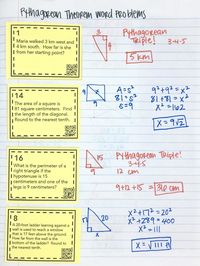 Pythagorean Theorem word problems
#1
Maria walked 3 km west and
4 km south. How far is she
from her starting point?
3
4
Pythagorean
Triple! 3-4-5
5 km
#14
The area of a square is
81 square centimeters. Find
the length of the diagonal.
Round to the nearest tenth.
9
A = s²
81 = s²
s = 9
9² + 9² = x²
81 + 81 = x²
x² = 162
x = 9√2
#16
What is the perimeter of a
right triangle if the
hypotenuse is 15
centimeters and one of the
legs is 9 centimeters?
15
9
Pythagorean Triple!
3-4-5
12 cm
9+12+15 = 36 cm
#8
A 20-foot ladder leaning against a
wall is used to reach a window
that is 17 feet above the ground.
How far from the wall is the
bottom of the ladder? Round to
the nearest tenth.
17
20
x
x² + 17² = 20²
x² + 289 = 400
x² = 111
x = √111